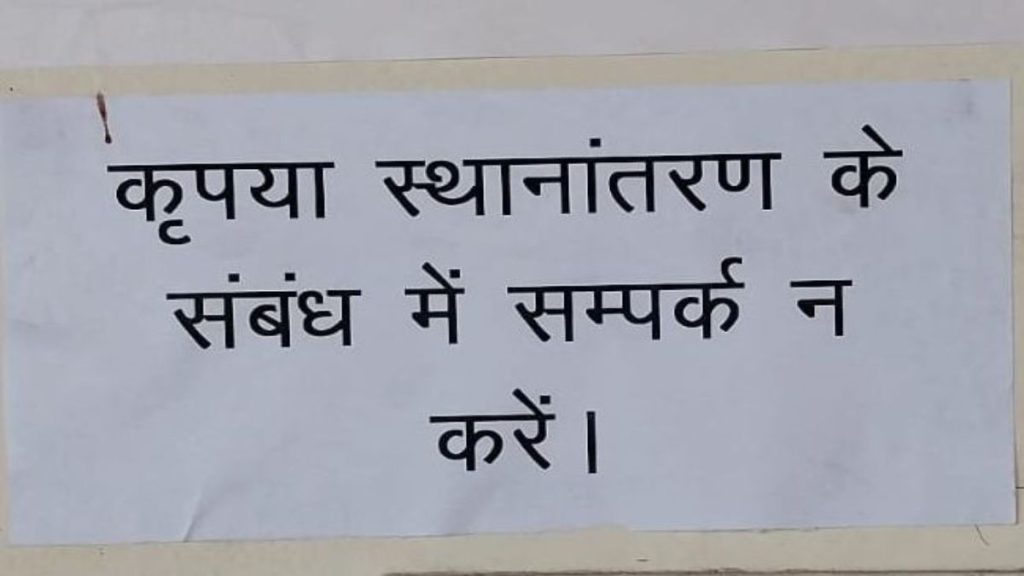 कृपया स्थानांतरण के
संबंध में सम्पर्क न
करें।